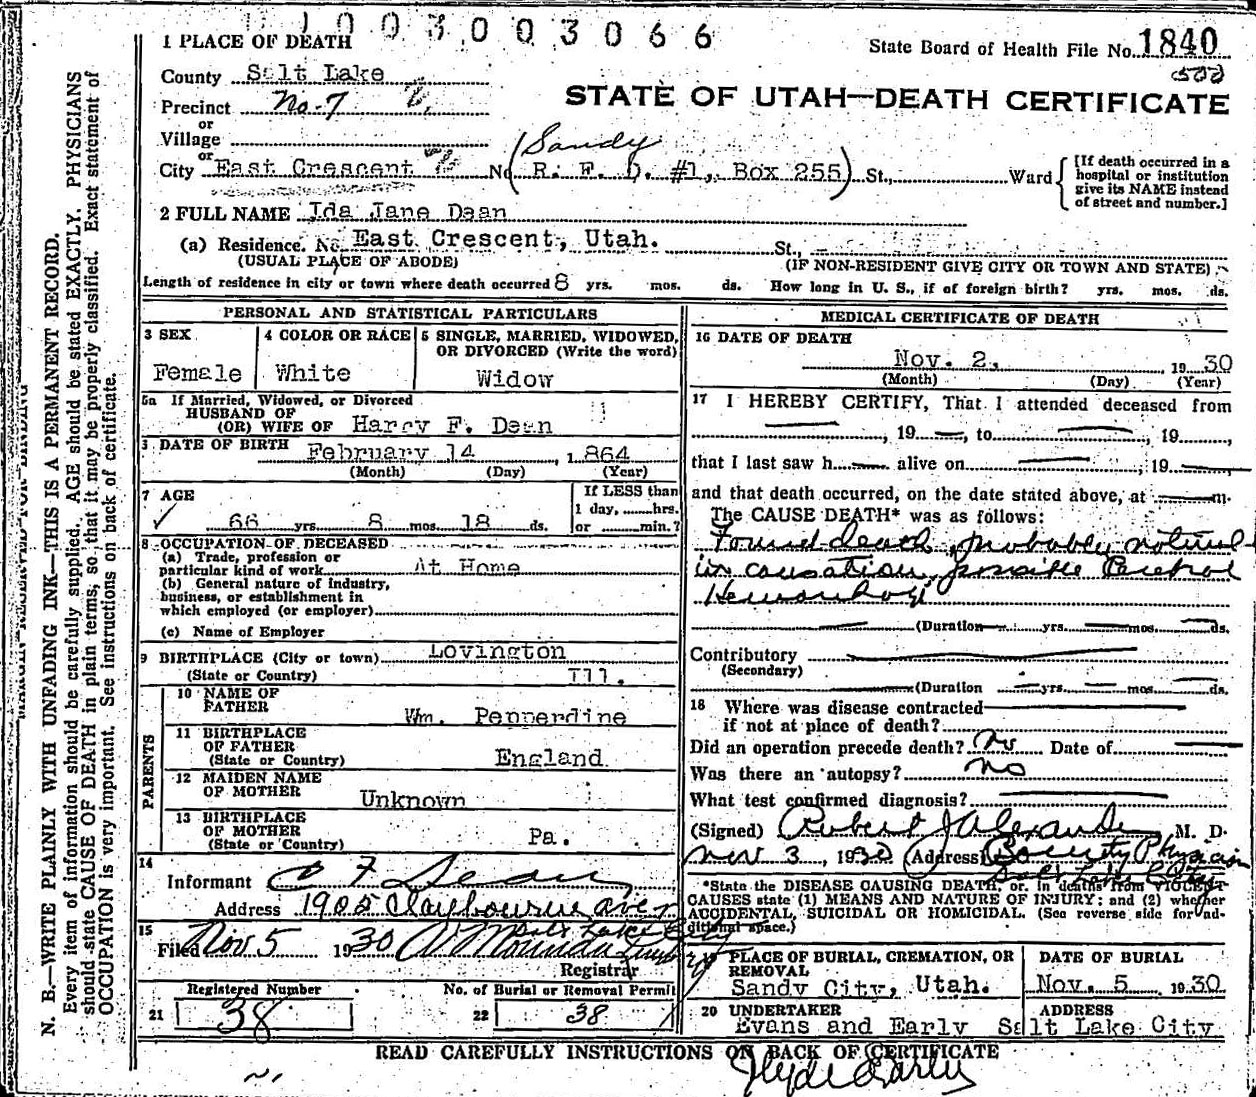 1003003066
1 PLACE OF DEATH
State Board of Health File No. 1840
County Salt Lake
Precinct No. 7
STATE OF UTAH—DEATH CERTIFICATE
or
Village
Sandy
or
City East Crescent No (R. F. D. #1, Box 255) St., Ward
[If death occurred in a
hospital or institution
give its NAME instead
of street and number.]
2 FULL NAME Ida Jane Dean
(a) Residence. No. East Crescent, Utah. St.,
(USUAL PLACE OF ABODE) (IF NON-RESIDENT GIVE CITY OR TOWN AND STATE)
Length of residence in city or town where death occurred 8 yrs. mos. ds. How long in U. S., if of foreign birth? yrs. mos. ds.
PERSONAL AND STATISTICAL PARTICULARS
3 SEX
Female
4 COLOR OR RACE
White
5 SINGLE, MARRIED, WIDOWED,
OR DIVORCED (Write the word)
Widow
5a If Married, Widowed, or Divorced
HUSBAND OF
(OR) WIFE OF Harry F. Dean
DATE OF BIRTH February 14, 1864
(Month) (Day) (Year)
7 AGE
66 yrs. 8 mos. 18 ds.
If LESS than
1 day, hrs.
or min.?
8 OCCUPATION OF DECEASED
(a) Trade, profession or
particular kind of work At Home
(b) General nature of industry,
business, or establishment in
which employed (or employer)
(c) Name of Employer
9 BIRTHPLACE (City or town) Lovington
(State or Country) Ill.
PARENTS
10 NAME OF
FATHER
Wm. Pepperdine
11 BIRTHPLACE
OF FATHER
(State or Country) England
12 MAIDEN NAME
OF MOTHER
Unknown
13 BIRTHPLACE
OF MOTHER
(State or Country) Pa.
14
Informant C F Dean
Address 1905 Claybourne ave
Salt Lake City
15
Filed Nov 5 1930
Registrar
Registered Number
21 38
No. of Burial or Removal Permit
22 38
MEDICAL CERTIFICATE OF DEATH
16 DATE OF DEATH
Nov. 2, 1930
(Month) (Day) (Year)
17 I HEREBY CERTIFY, That I attended deceased from
, 19 , to , 19 ,
that I last saw h alive on , 19
and that death occurred, on the date stated above, at m.
The CAUSE DEATH* was as follows:
Found death, probably natural
in causation, possible Cerebral
Hemorrhage
(Duration yrs. mos. ds.
Contributory
(Secondary)
(Duration yrs. mos. ds.
18 Where was disease contracted
if not at place of death?
Did an operation precede death? No Date of
Was there an autopsy? no
What test confirmed diagnosis?
(Signed) Robert J Alexander, M. D.
Nov 3, 1930 (Address) County Physician
Salt Lake City
*State the DISEASE CAUSING DEATH, or, in deaths from VIOLENT
CAUSES state (1) MEANS AND NATURE OF INJURY; and (2) whether
ACCIDENTAL, SUICIDAL OR HOMICIDAL. (See reverse side for ad-
ditional space.)
19 PLACE OF BURIAL, CREMATION, OR
REMOVAL
Sandy City, Utah.
DATE OF BURIAL
Nov. 5 1930
20 UNDERTAKER
Evans and Early
ADDRESS
Salt Lake City
READ CAREFULLY INSTRUCTIONS ON BACK OF CERTIFICATE
Clyde Early
MARGIN RESERVED FOR BINDING
N. B.—WRITE PLAINLY WITH UNFADING INK—THIS IS A PERMANENT RECORD.
Every item of information should be carefully supplied. AGE should be stated EXACTLY. PHYSICIANS
should state CAUSE OF DEATH in plain terms, so that it may be properly classified. Exact statement of
OCCUPATION is very important. See instructions on back of certificate.